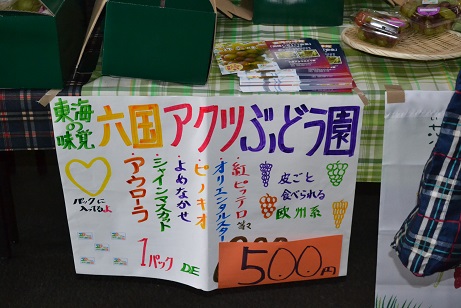 東海の味覚
六国アクツぶどう園
皮ごと
食べられる
欧州系
紅ピッテロ
オリエンタルスター
ピノキオ
よめなかせ
シャインマスカット
アウローラ
パックに
入ってるよ
1パック
DE
500円